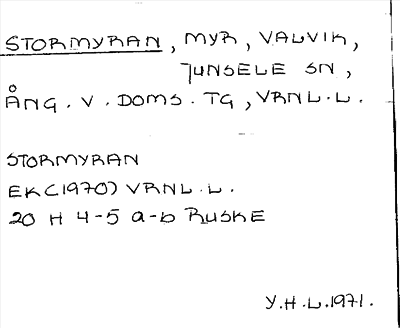 STORMYRAN, MYR, VALVIK,
JUNSELE SN,
ÅNG. V. DOMS. TG, VRNL.L.
STORMYRAN
EK(1970) VRNL.L.
20 H 4-5 a-b RUSKE
Y.H.L.1971.